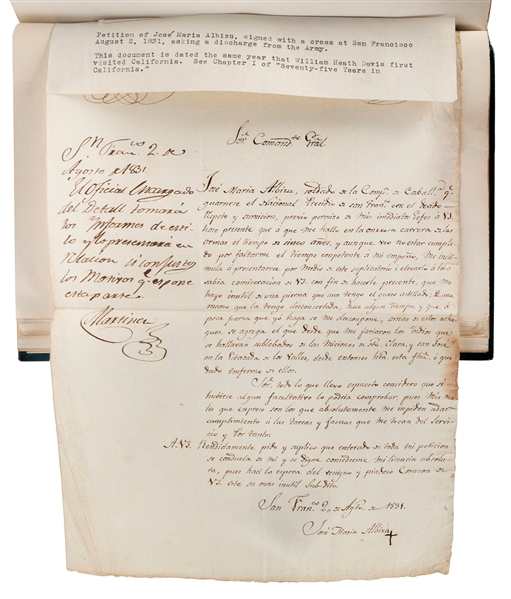 Petition of José Maria Albizu, signed with a cross at San Francisco
August 2, 1831, asking a discharge from the Army.
This document is dated the same year that William Heath Davis first
visited California. See Chapter I of "Seventy-five Years in
California."
Sor. Comandte. Gral.
Sn. Franco. 2. de
Agosto de 1831
El oficial encargado
del Detall tomará
los Informes de esti-
lo y lo presentará en
relacion
los Motivos qe. espone
esta parte.
Martinez
José Maria Albizu, soldado de la Compa. de Caballa. qe.
guarnece el Nacional Precidio de San Franco. con el devido
respeto y sumicion, previo permiso de mis imediatos Gefes á VS.
hace presente que á me hallo en la carrera de las
armas el tiempo de cinco años, y aunque veo no estar cumpli-
do por faltarme el tiempo competente á mi empeño, me
á presentarme por medio de este suplicatorio i elevarlo á la
sabia concideracion de VS. con fin de hacerle presente, que me
hayo inutil de una pierna que una tengo el queso astillado, i una
mano que la tengo desconcertada hace algun tiempo, y que á
poca fuerza que yó haga se me descompone,
se agrega el que desde que me
se hallavan sublebados de las miciones de Sta. Clara, y San José
en la Estacada de los Valles, desde entonces hta. esta fha. é que-
dado enfermo
Sor. todo lo que llevo espuesto considero que si
hubiese algun facultativo lo podria comprobar, pues mis ma-
les que espreso son los que absolutamente me impiden á dar
cumplimiento á las tareas y faenas que me tocan del Servi-
cio y Por tanto.
A VS. Rendidamente pido y suplico que enterado de toda mi peticion
se conduela de mi y se digne concederme mi licencia absolu-
ta, pues haci lo espera del venigno y piadoso Corazon de
VS. este su mas inutil Subdito.
San Franco. 2 de Agto. de 1831.
José Maria Albizu